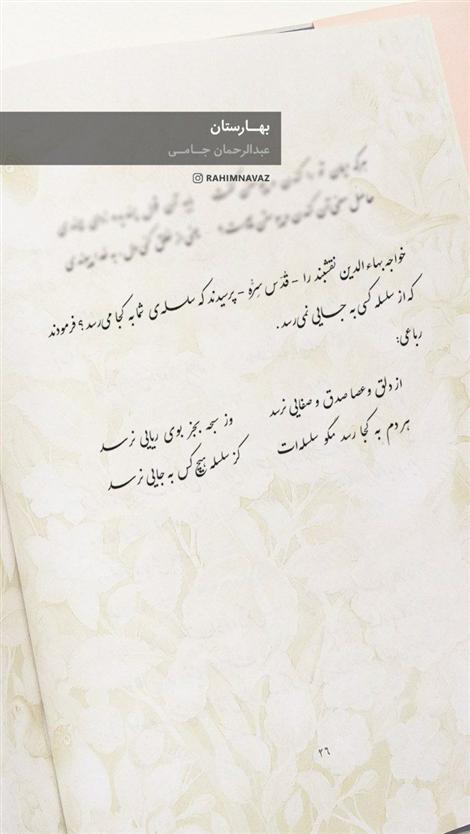 بهارستان
عبدالرحمان جامی
RAHIMNAVAZ
خواجه بهاء الدین نقشبند را - قدّس سرّه - پرسیدند که سلسله‌ی شما به کجا می‌رسد؟ فرمودند
که از سلسله کسی به جایی نمی‌رسد.
رباعی:
از دلق و عصا صدق و صفایی نرسد
وز سبحه بجز بوی ریایی نرسد
هر دم به کجا رسد مگو سلسله‌ات
کز سلسله هیچ کس به جایی نرسد
۲۶